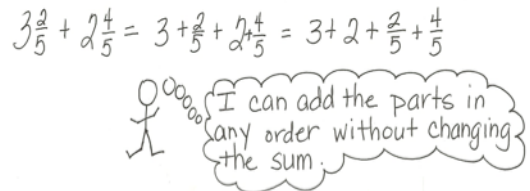 3 2/5 + 2 4/5 = 3 + 2/5 + 2 + 4/5 = 3 + 2 + 2/5 + 4/5
I can add the parts in
any order without changing
the sum.